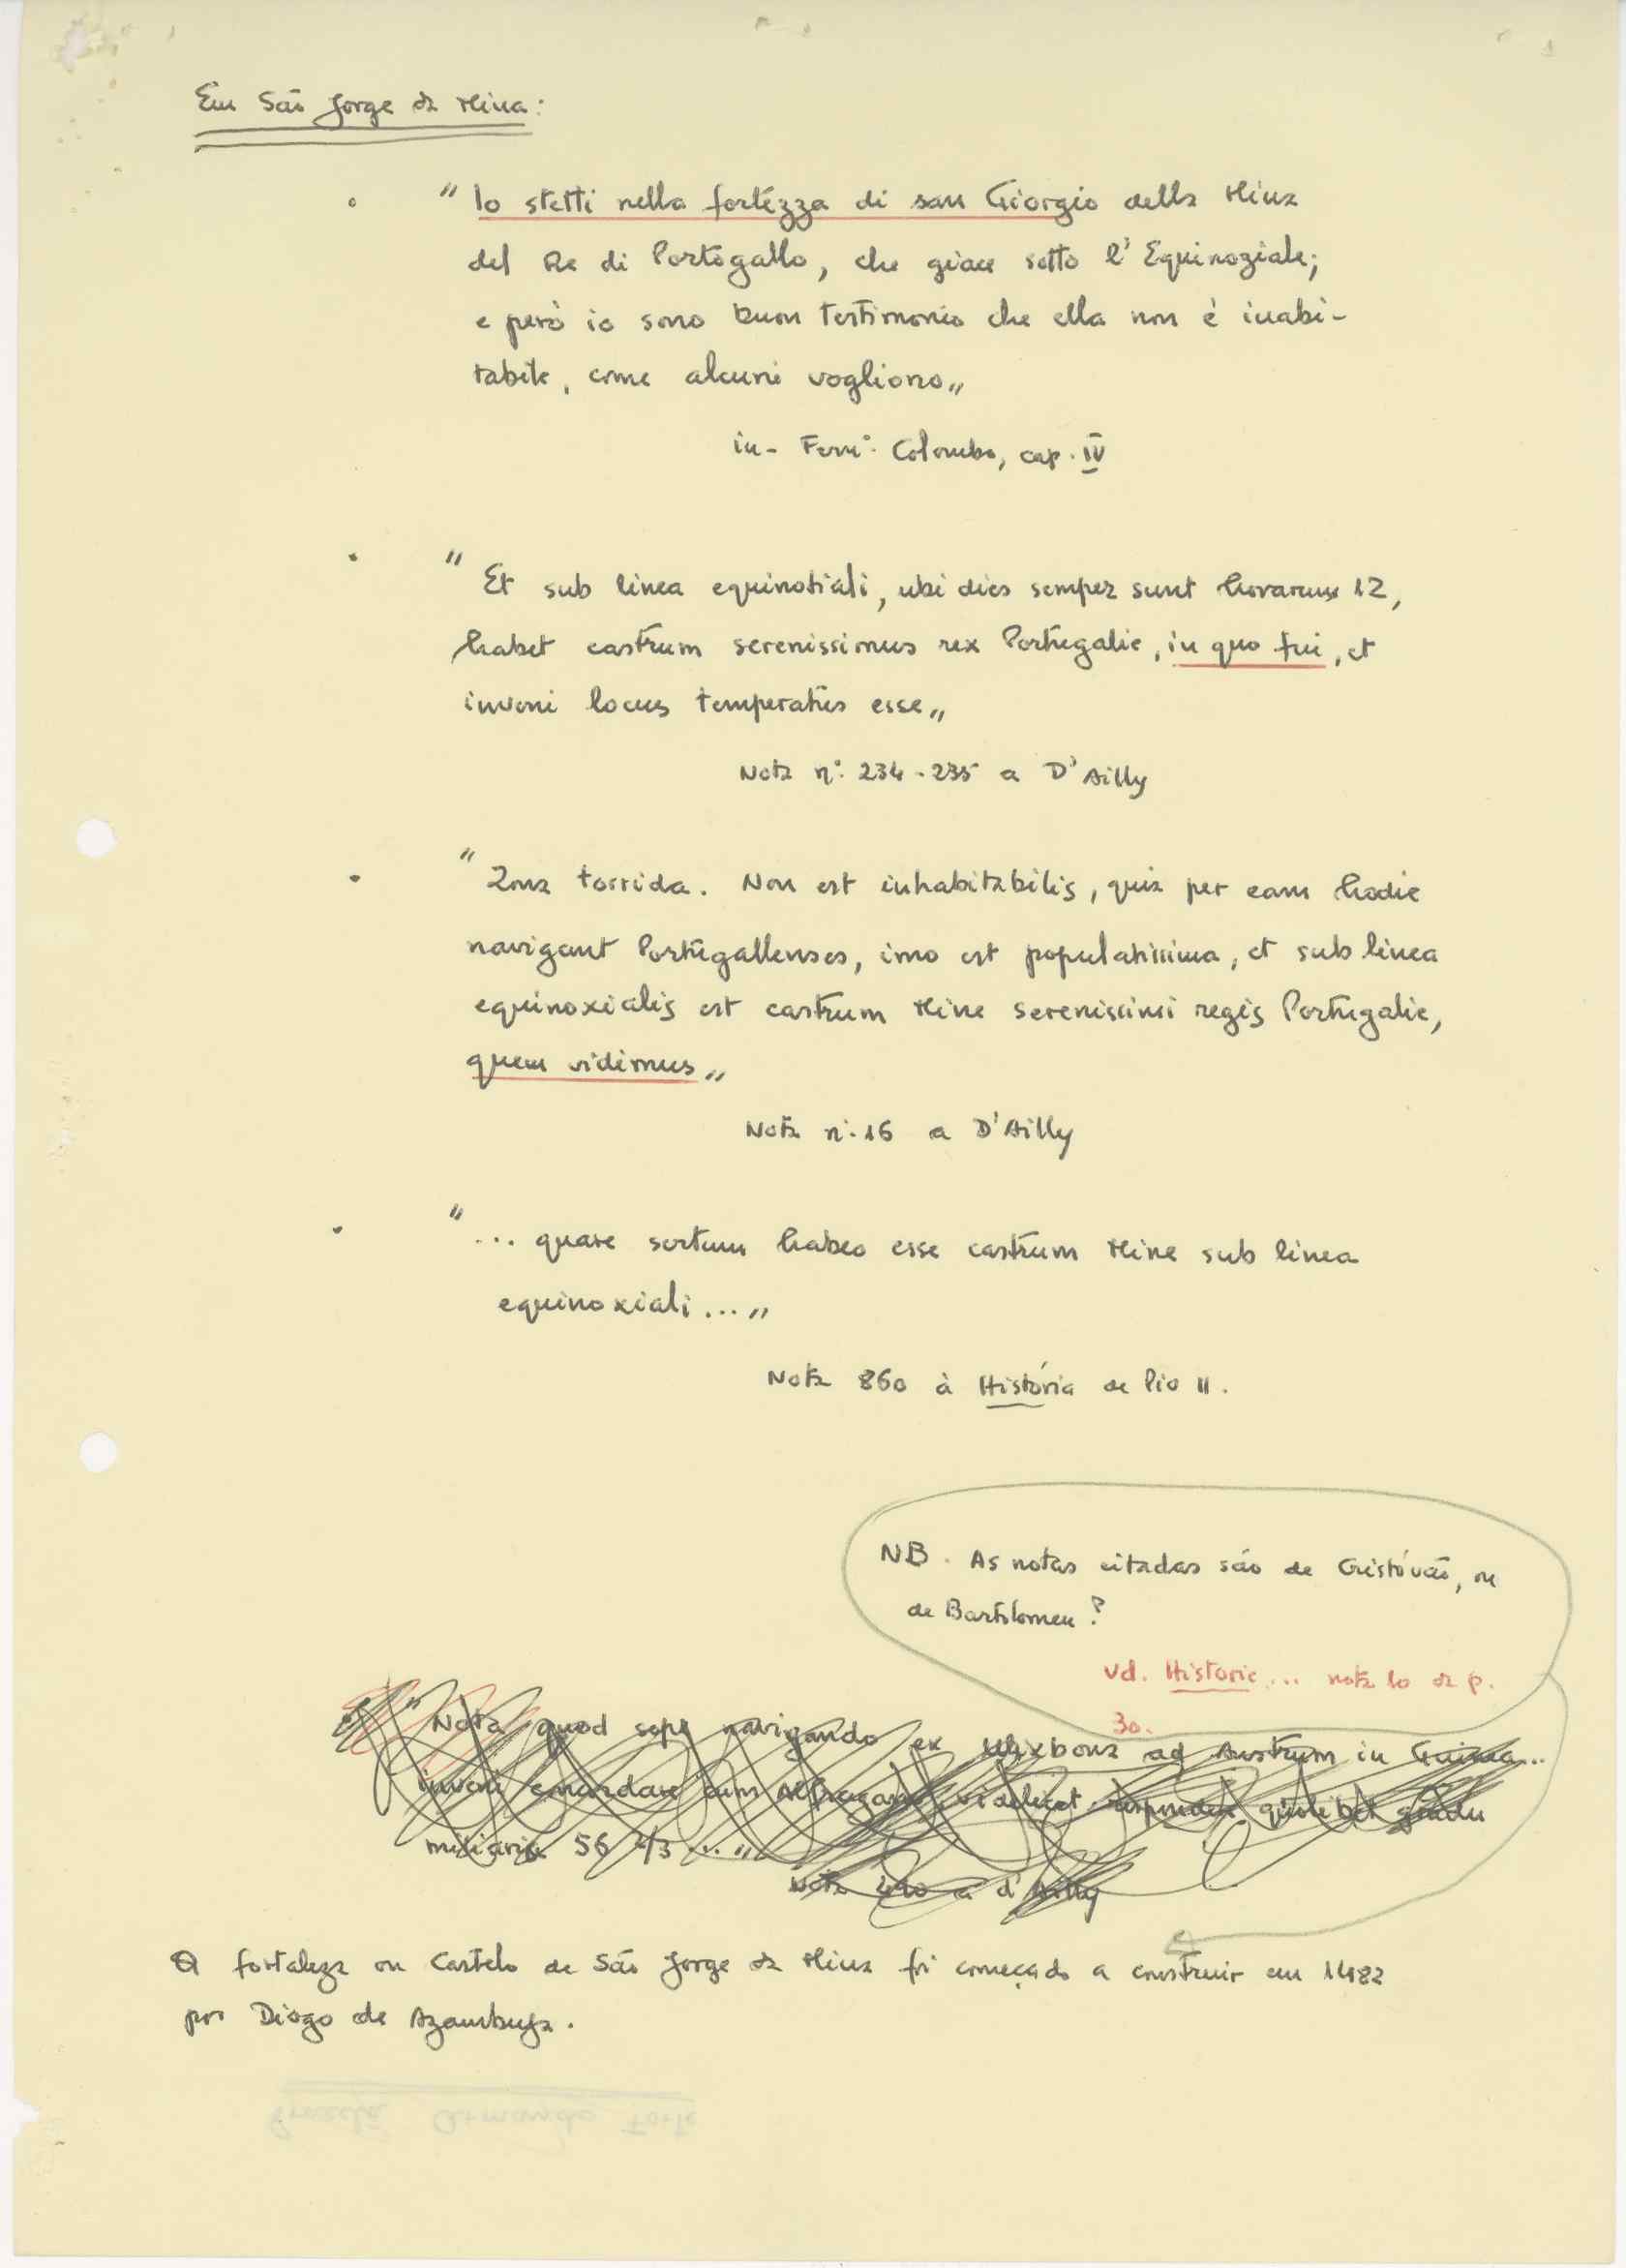 Em São Jorge da Mina:
" Io stetti nella fortezza di san Giorgio della Mina
del Re di Portogallo, che giace sotto l' Equinoziale;
e però io sono buon testimonio che ella non è inabi-
tabile, come alcuni vogliono"
in - Fern.º Colombo, cap. IV
" Et sub linea equinotiali, ubi dies semper sunt horarum 12,
habet castrum serenissimus rex Portugalie, in quo fui, et
inveni locus temperatus esse"
Nota n.º 234-235 a D'Ailly
" Zona torrida. Non est inhabitabilis, quia per eam hodie
navigant Portugallenses, imo est populatissima, et sub linea
equinoxialis est castrum Mine serenissimi regis Portugalie,
quem vidimus"
Nota n.º 16 a D'Ailly
" ... quare sertum habeo esse castrum Mine sub linea
equinoxiali..."
Nota 860 à História de Pio II.
NB. As notas citadas são de Cristóvão, ou
de Bartolomeu?
Vd. Historie... nota 10 da p.
30.
" Nota quod sepe navigando ex Ulixbona ad Austrum in Guinea...
inveni concordare cum Alfragano, videlicet respondere quolibet gradu
miliaria 56 2/3 ... "
Nota 490 a d'Ailly
A fortaleza ou Castelo de São Jorge da Mina foi começado a construir em 1482
por Diogo de Azambuja.